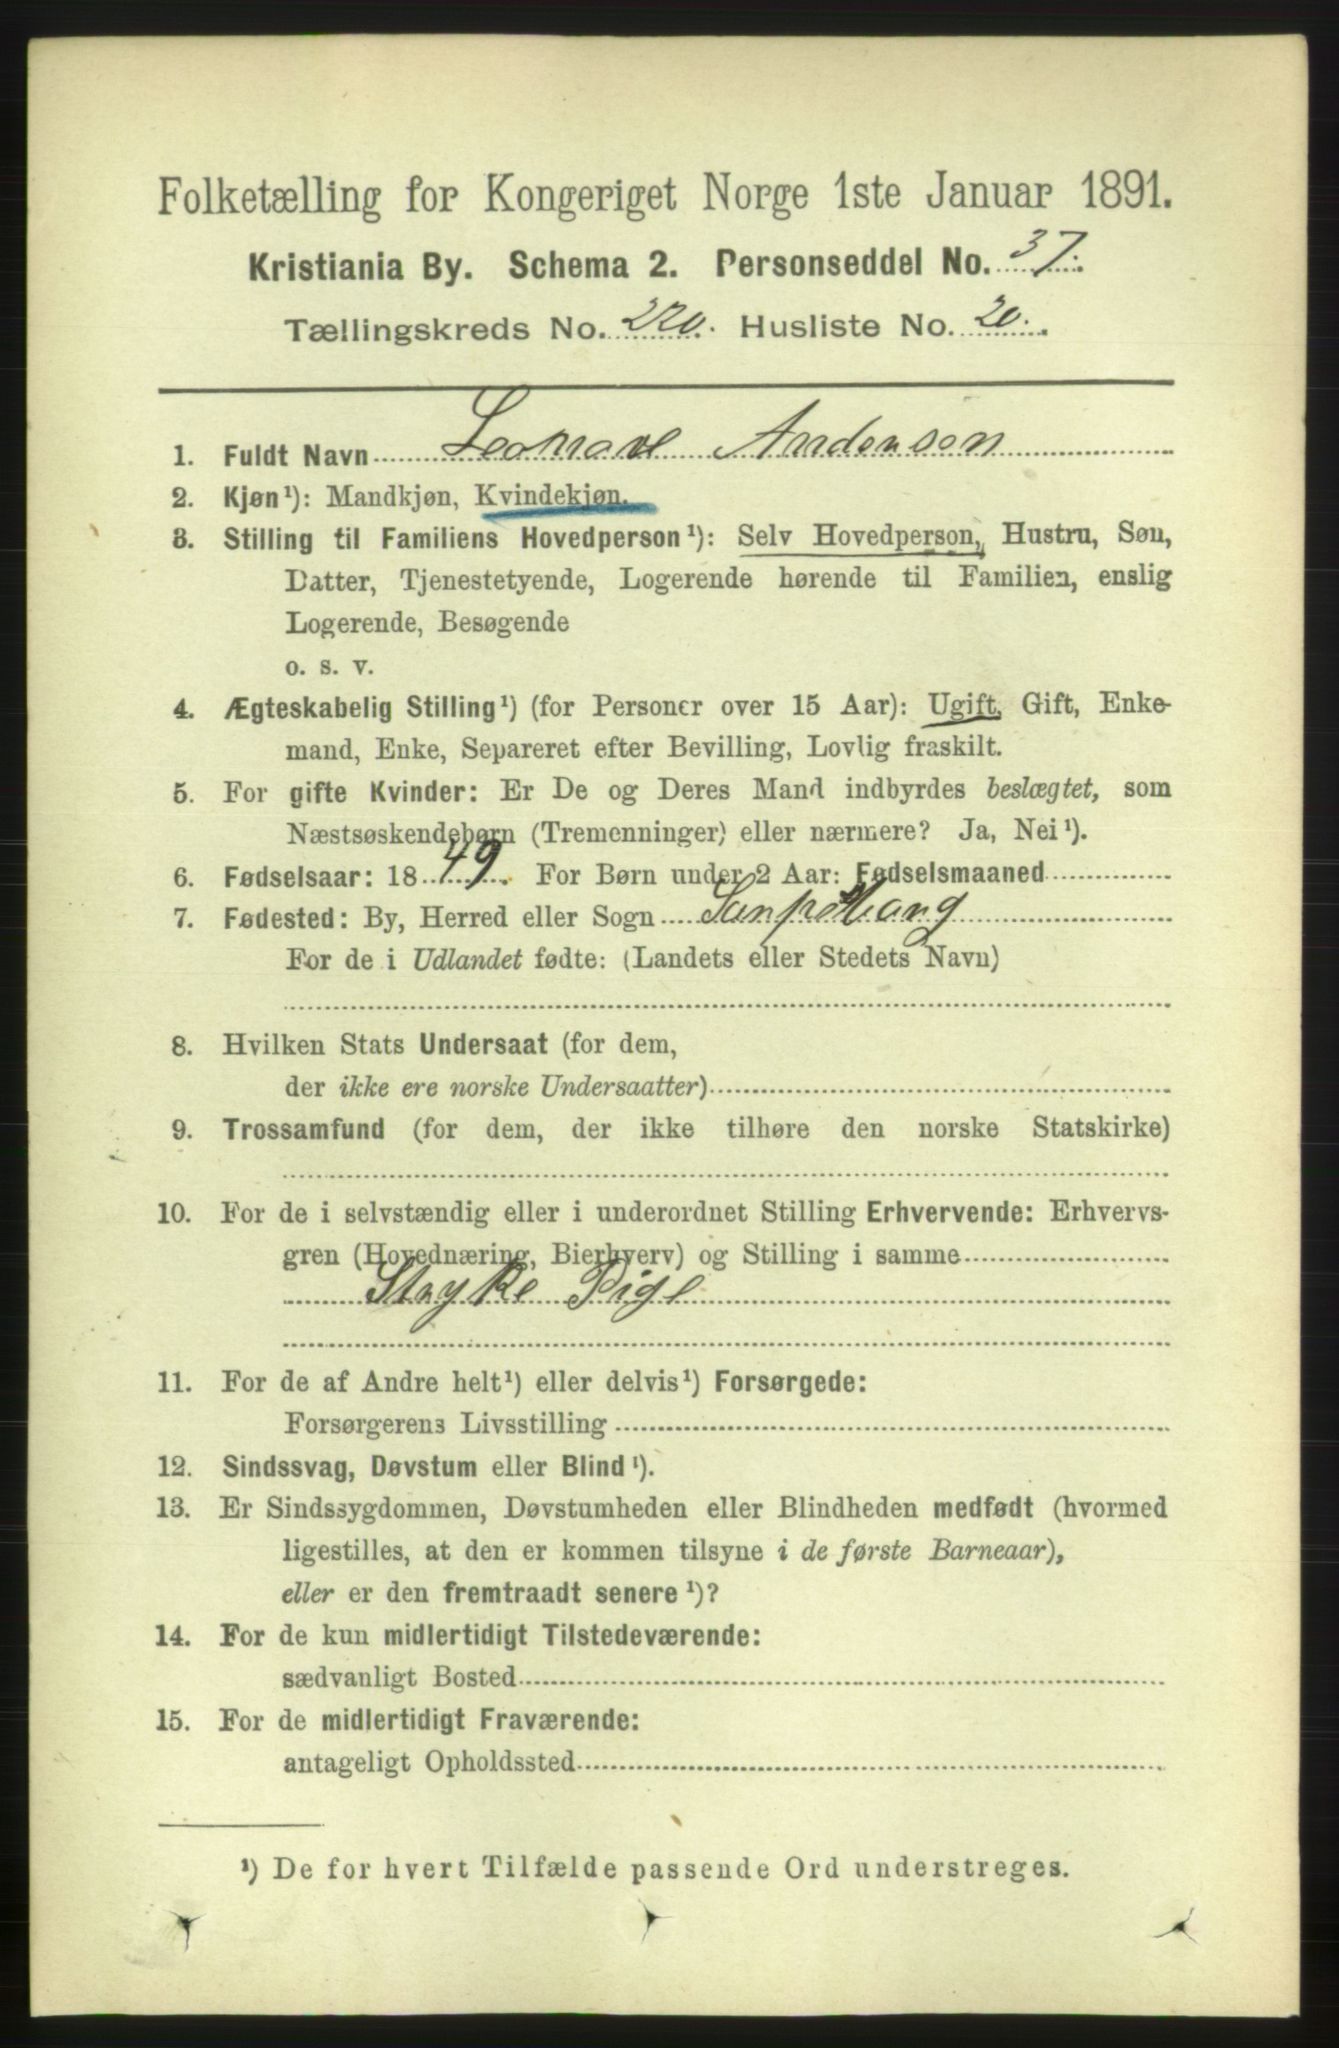 Folketælling for Kongeriget Norge 1ste Januar 1891.
Kristiania By. Schema 2. Personseddel No. 37.
Tællingskreds No. 220. Husliste No. 20.
1. Fuldt Navn Leonove Andersen
2. Kjøn¹): Mandkjøn, Kvindekjøn.
3. Stilling til Familiens Hovedperson¹): Selv Hovedperson, Hustru, Søn,
Datter, Tjenestetyende, Logerende hørende til Familien, enslig
Logerende, Besøgende
o. s. v.
4. Ægteskabelig Stilling¹) (for Personer over 15 Aar): Ugift, Gift, Enke-
mand, Enke, Separeret efter Bevilling, Lovlig fraskilt.
5. For gifte Kvinder: Er De og Deres Mand indbyrdes beslægtet, som
Næstsøskendebørn (Tremenninger) eller nærmere? Ja, Nei¹).
6. Fødselsaar: 1849. For Børn under 2 Aar: Fødselsmaaned
7. Fødested: By, Herred eller Sogn Sarpsborg
For de i Udlandet fødte: (Landets eller Stedets Navn)
8. Hvilken Stats Undersaat (for dem,
der ikke ere norske Undersaatter)
9. Trossamfund (for dem, der ikke tilhøre den norske Statskirke)
10. For de i selvstændig eller i underordnet Stilling Erhvervende: Erhvervs-
gren (Hovednæring, Bierhverv) og Stilling i samme
Stryke Pige
11. For de af Andre helt¹) eller delvis¹) Forsørgede:
Forsørgerens Livsstilling
12. Sindssvag, Døvstum eller Blind¹).
13. Er Sindssygdommen, Døvstumheden eller Blindheden medfødt (hvormed
ligestilles, at den er kommen tilsyne i de første Barneaar),
eller er den fremtraadt senere¹)?
14. For de kun midlertidigt Tilstedeværende:
sædvanligt Bosted
15. For de midlertidigt Fraværende:
antageligt Opholdssted
¹) De for hvert Tilfælde passende Ord understreges.